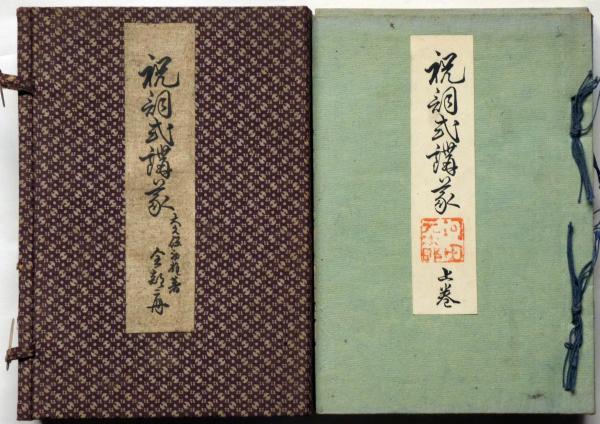 祝詞式講義
大久保初雄著
全部二冊
祝詞式講義
上巻